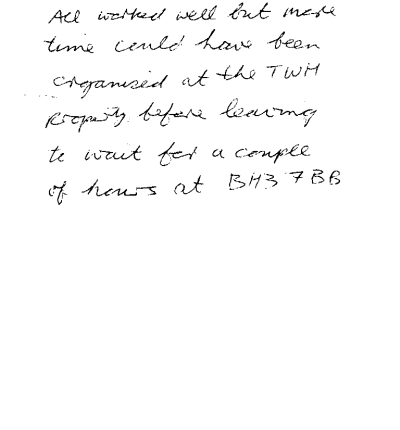 All worked well but more
time could have been
organised at the TWH
Property before leaving
to wait for a couple
of hours at BH3 7BB